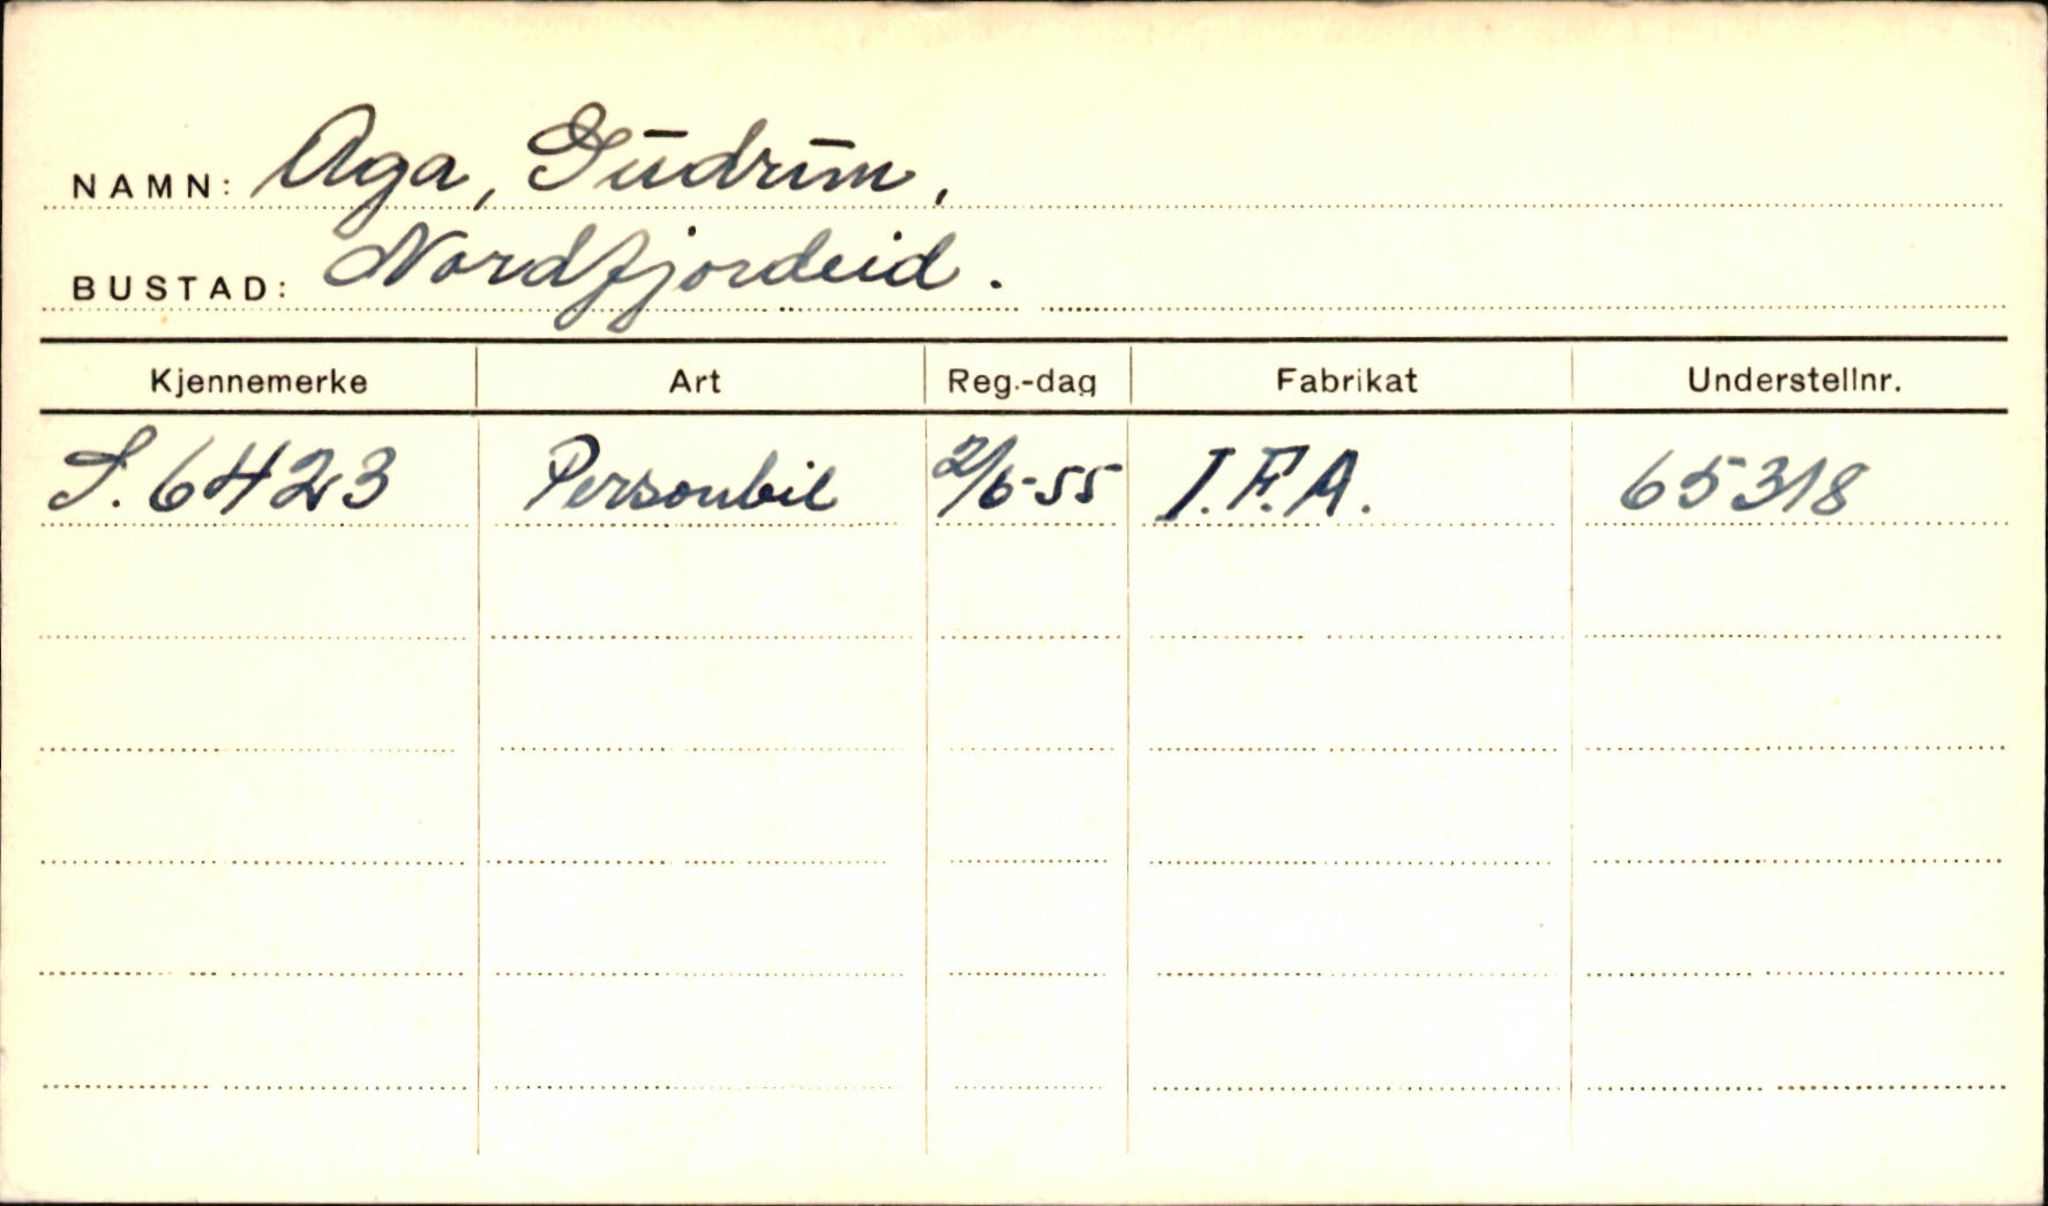 NAMN: Aga, Gudrun,
BUSTAD: Nordfjordeid.
Kjennemerke Art Reg.-dag Fabrikat Understellnr.
S. 6423 Personbil 2/6-55 I.F.A. 65318